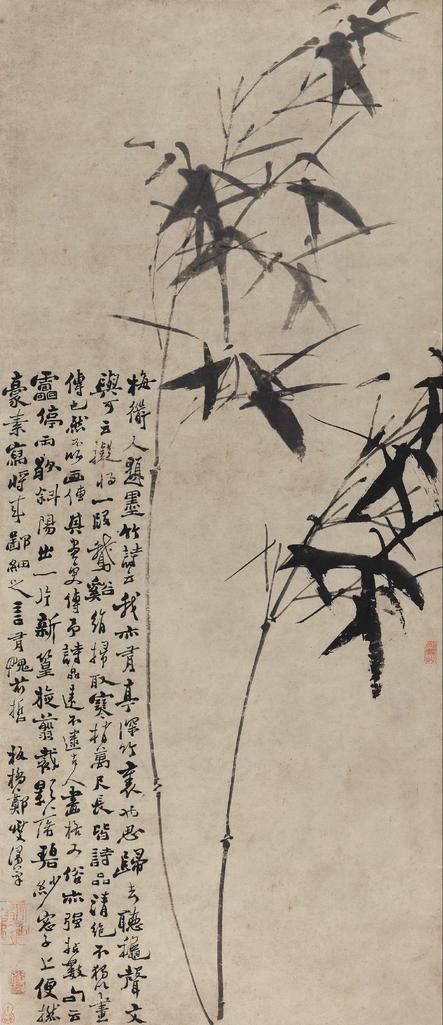 梅衜人題墨竹詩云我亦有亭深竹裏也思歸去聽龝聲文
與可云擬將一段鵞谿絹掃取寒梢萬尺長皆詩品清絕不獨以畫
傳也然不以畫傳其畫更傳予詩品遠不逮古人畫格又俗亦强拈數句云
靁停雨歇斜陽出一片新篁旋翦裁影落碧紗窓子上便拈
毫素寫將來鄙細之言有愧前哲 板橋鄭燮漫筆